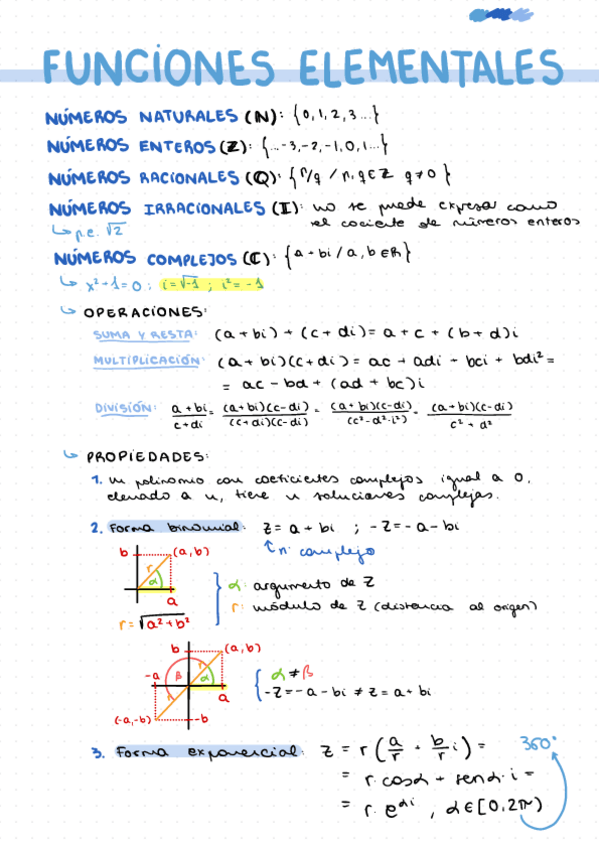 FUNCIONES ELEMENTALES
NÚMEROS NATURALES (N): {0, 1, 2, 3...}
NÚMEROS ENTEROS (Z): {...-3, -2, -1, 0, 1...}
NÚMEROS RACIONALES (Q): {p/q / p, q ∈ Z q ≠ 0}
NÚMEROS IRRACIONALES (I): no se puede expresar como
el cociente de números enteros
↳ p.e. √2
NÚMEROS COMPLEJOS (C): {a + bi / a, b ∈ R}
↳ x² + 1 = 0 ; i = √-1 ; i² = -1
↳ OPERACIONES:
SUMA Y RESTA: (a + bi) + (c + di) = a + c + (b + d)i
MULTIPLICACIÓN: (a + bi)(c + di) = ac + adi + bci + bdi² =
= ac - bd + (ad + bc)i
DIVISIÓN: (a + bi)/(c + di) = (a + bi)(c - di)/(c + di)(c - di) = (a + bi)(c - di)/(c² - d²·i²) = (a + bi)(c - di)/(c² + d²)
↳ PROPIEDADES:
1. un polinomio con coeficientes complejos igual a 0,
elevado a n, tiene n soluciones complejas.
2. Forma binomial: Z = a + bi ; -Z = -a - bi
↑ n. complejo
b (a, b)
r α
a
r = √a² + b²
α: argumento de Z
r: módulo de Z (distancia al origen)
b (a, b)
-a β r α
a
(-a, -b) -b
α ≠ β
-Z = -a - bi ≠ Z = a + bi
3. Forma exponencial: Z = r (a/r + b/r i) =
= r · cosα + senα · i =
= r · e^αi , α ∈ [0, 2π)
360°